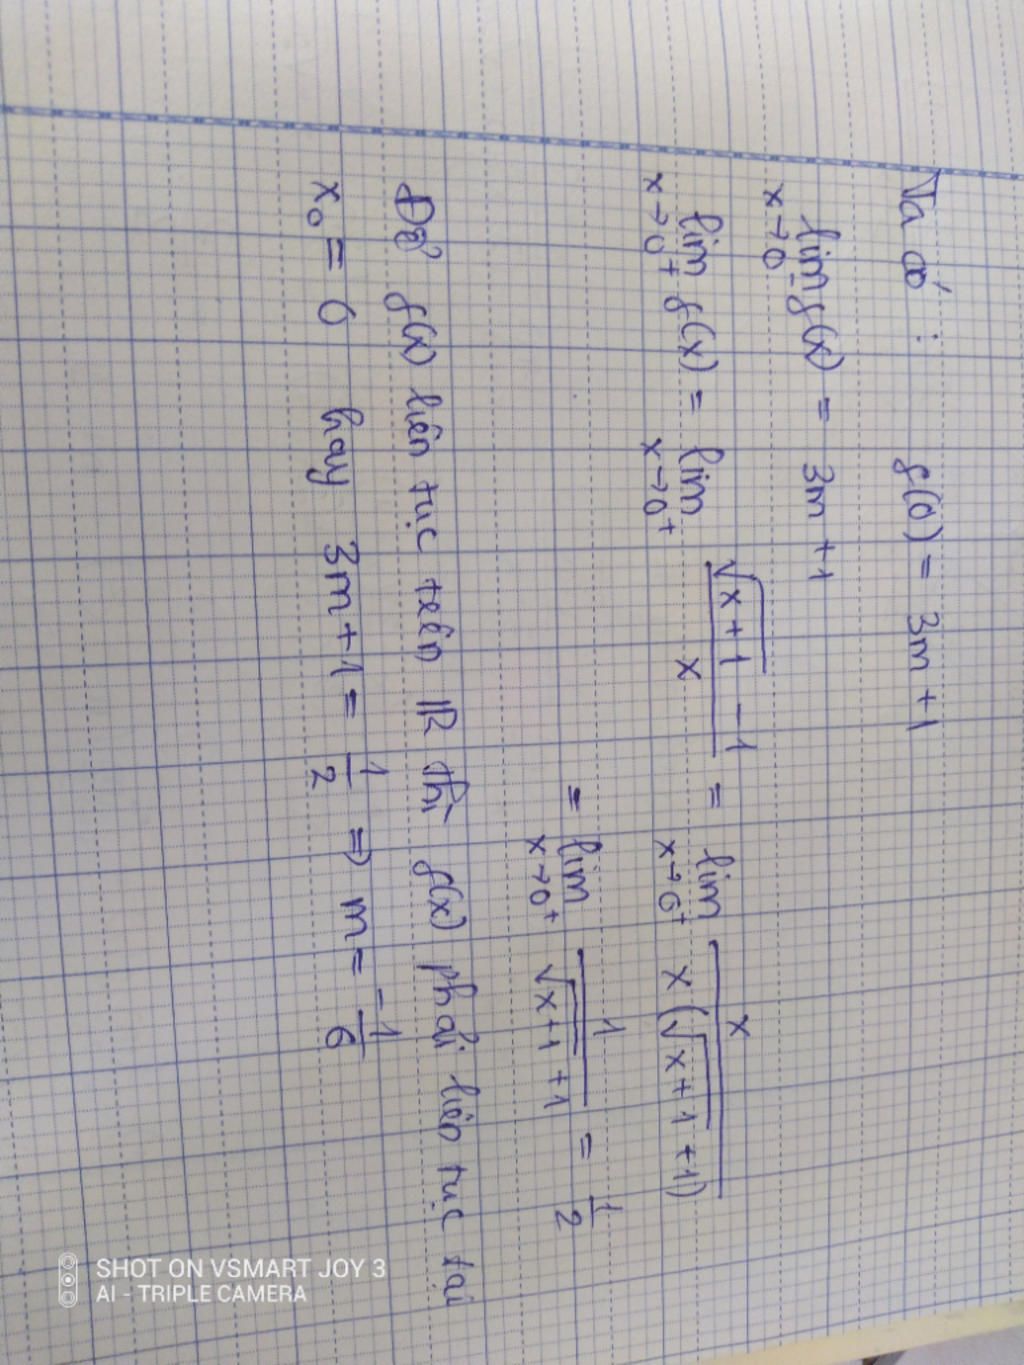 Ta có : f(0) = 3m + 1
lim x→0⁻ f(x) = 3m + 1
lim x→0⁺ f(x) = lim x→0⁺ (√(x+1) - 1)/x = lim x→0⁺ x/(x(√(x+1) + 1))
= lim x→0⁺ 1/(√(x+1) + 1) = 1/2
Để f(x) liên tục trên ℝ thì f(x) phải liên tục tại
x₀ = 0 hay 3m + 1 = 1/2 ⇒ m = -1/6
SHOT ON VSMART JOY 3
AI - TRIPLE CAMERA